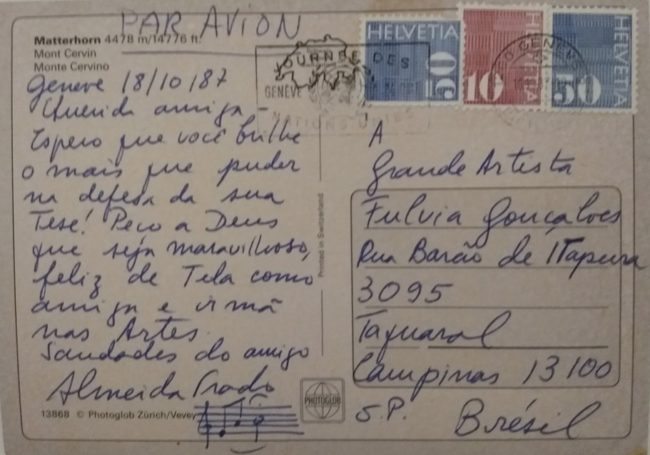 PAR AVION
Matterhorn 4478 m/14776 ft.
Mont Cervin
Monte Cervino
Genève 18/10/87
Querida amiga
Espero que você brilhe
o mais que puder
na defesa da sua
Tese! Peço a Deus
que seja maravilhoso,
feliz de Tela como
amiga e irmã
nas Artes.
Saudades do amigo
Almeida Prado
13868 © Photoglob Zürich/Vevey
Printed in Switzerland
PHOTOGLOB
JOURNEE DES
GENÈVE
NATIONS UNIES
HELVETIA
50
HELVETIA
10
HELVETIA
50
GENEVE
A
Grande Artista
Fulvia Gonçalves
Rua Barão de Itapura
3095
Taquaral
Campinas 13100
S.P. Brésil